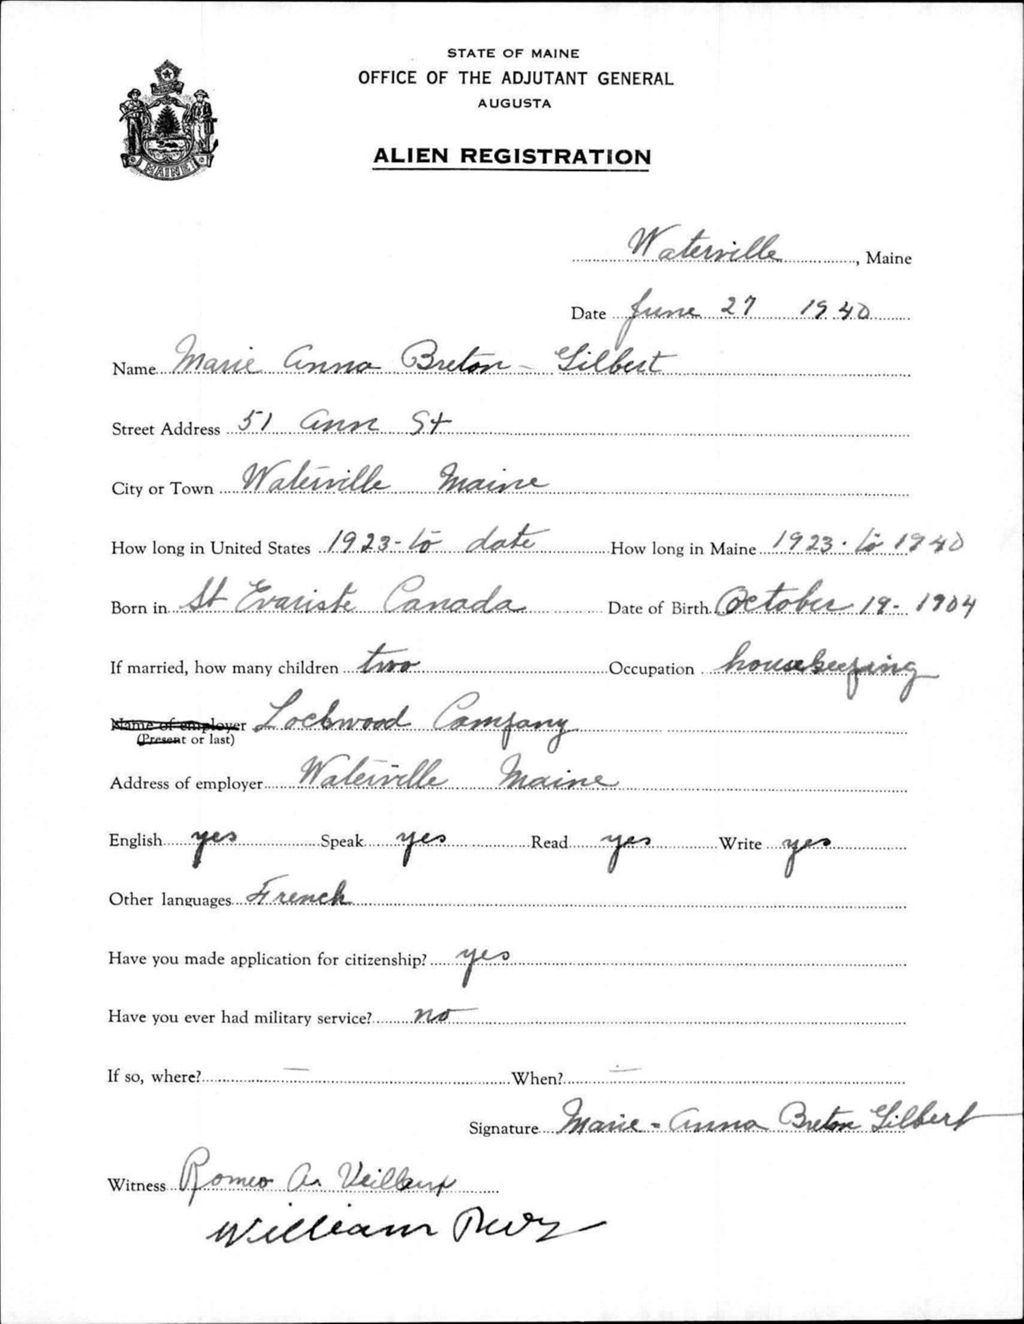 STATE OF MAINE
OFFICE OF THE ADJUTANT GENERAL
AUGUSTA
ALIEN REGISTRATION
MAINE
Waterville, Maine
Date June 27 1940
Name Marie Anna Breton - Gilbert
Street Address 51 Ann St
City or Town Waterville Maine
How long in United States 1923 - to date How long in Maine 1923 - to 1940
Born in St Evariste Canada Date of Birth October 19 - 1904
If married, how many children two Occupation housekeeping
Name of employer Lockwood Company
(Present or last)
Address of employer Waterville Maine
English yes Speak yes Read yes Write yes
Other languages French
Have you made application for citizenship? yes
Have you ever had military service? no
If so, where? — When? —
Signature Marie - Anna Breton Gilbert
Witness Romeo A. Veilleux
William